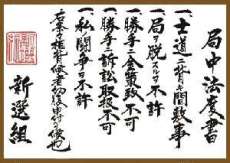 局中法度書
一士道ニ背キ間敷事
一局ヲ脱スルヲ不許
一勝手ニ金策致不可
一勝手ニ訴訟取扱不可
一私ノ闘争ヲ不許
右条々相背候者切腹申付ベク候也
新選組